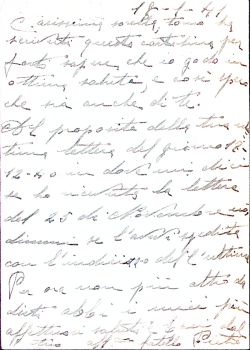 18-1-41
Carissima sorella, torno ha
scriverti questa cartolina per
farti sapere che io godo in
ottima salute, e così spero
che sia anche di te.
Al proposito della tua ul
tima lettera del giorno
12-40 in dove mi dici
se ho ricevuto la lettera
del 25 di Novembre
se l'avevi spedita
con l'indirizzo dell'
Per ora non più altro da
dirti abbi i miei più
affettuosi saluti e baci dal
tuo aff